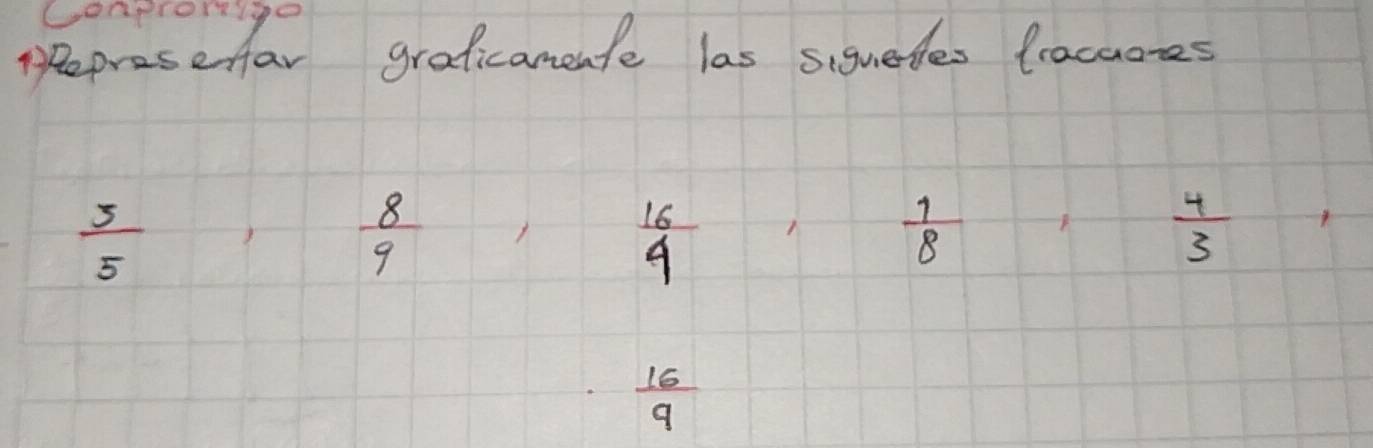 Conpromiso
1) Represertar graficamente las siguetes fracciones
3/5 , 8/9 , 16/4 , 1/8 , 4/3 ,
. 16/9